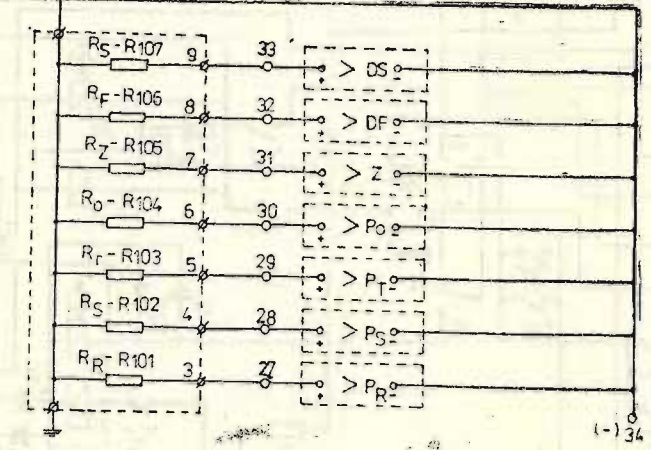 RS-R107 9 33 + > DS -
RF-R106 8 32 + > DF -
RZ-R105 7 31 + > Z -
R0-R104 6 30 + > P0 -
RT-R103 5 29 + > PT -
RS-R102 4 28 + > PS -
RR-R101 3 27 + > PR -
(-) 34